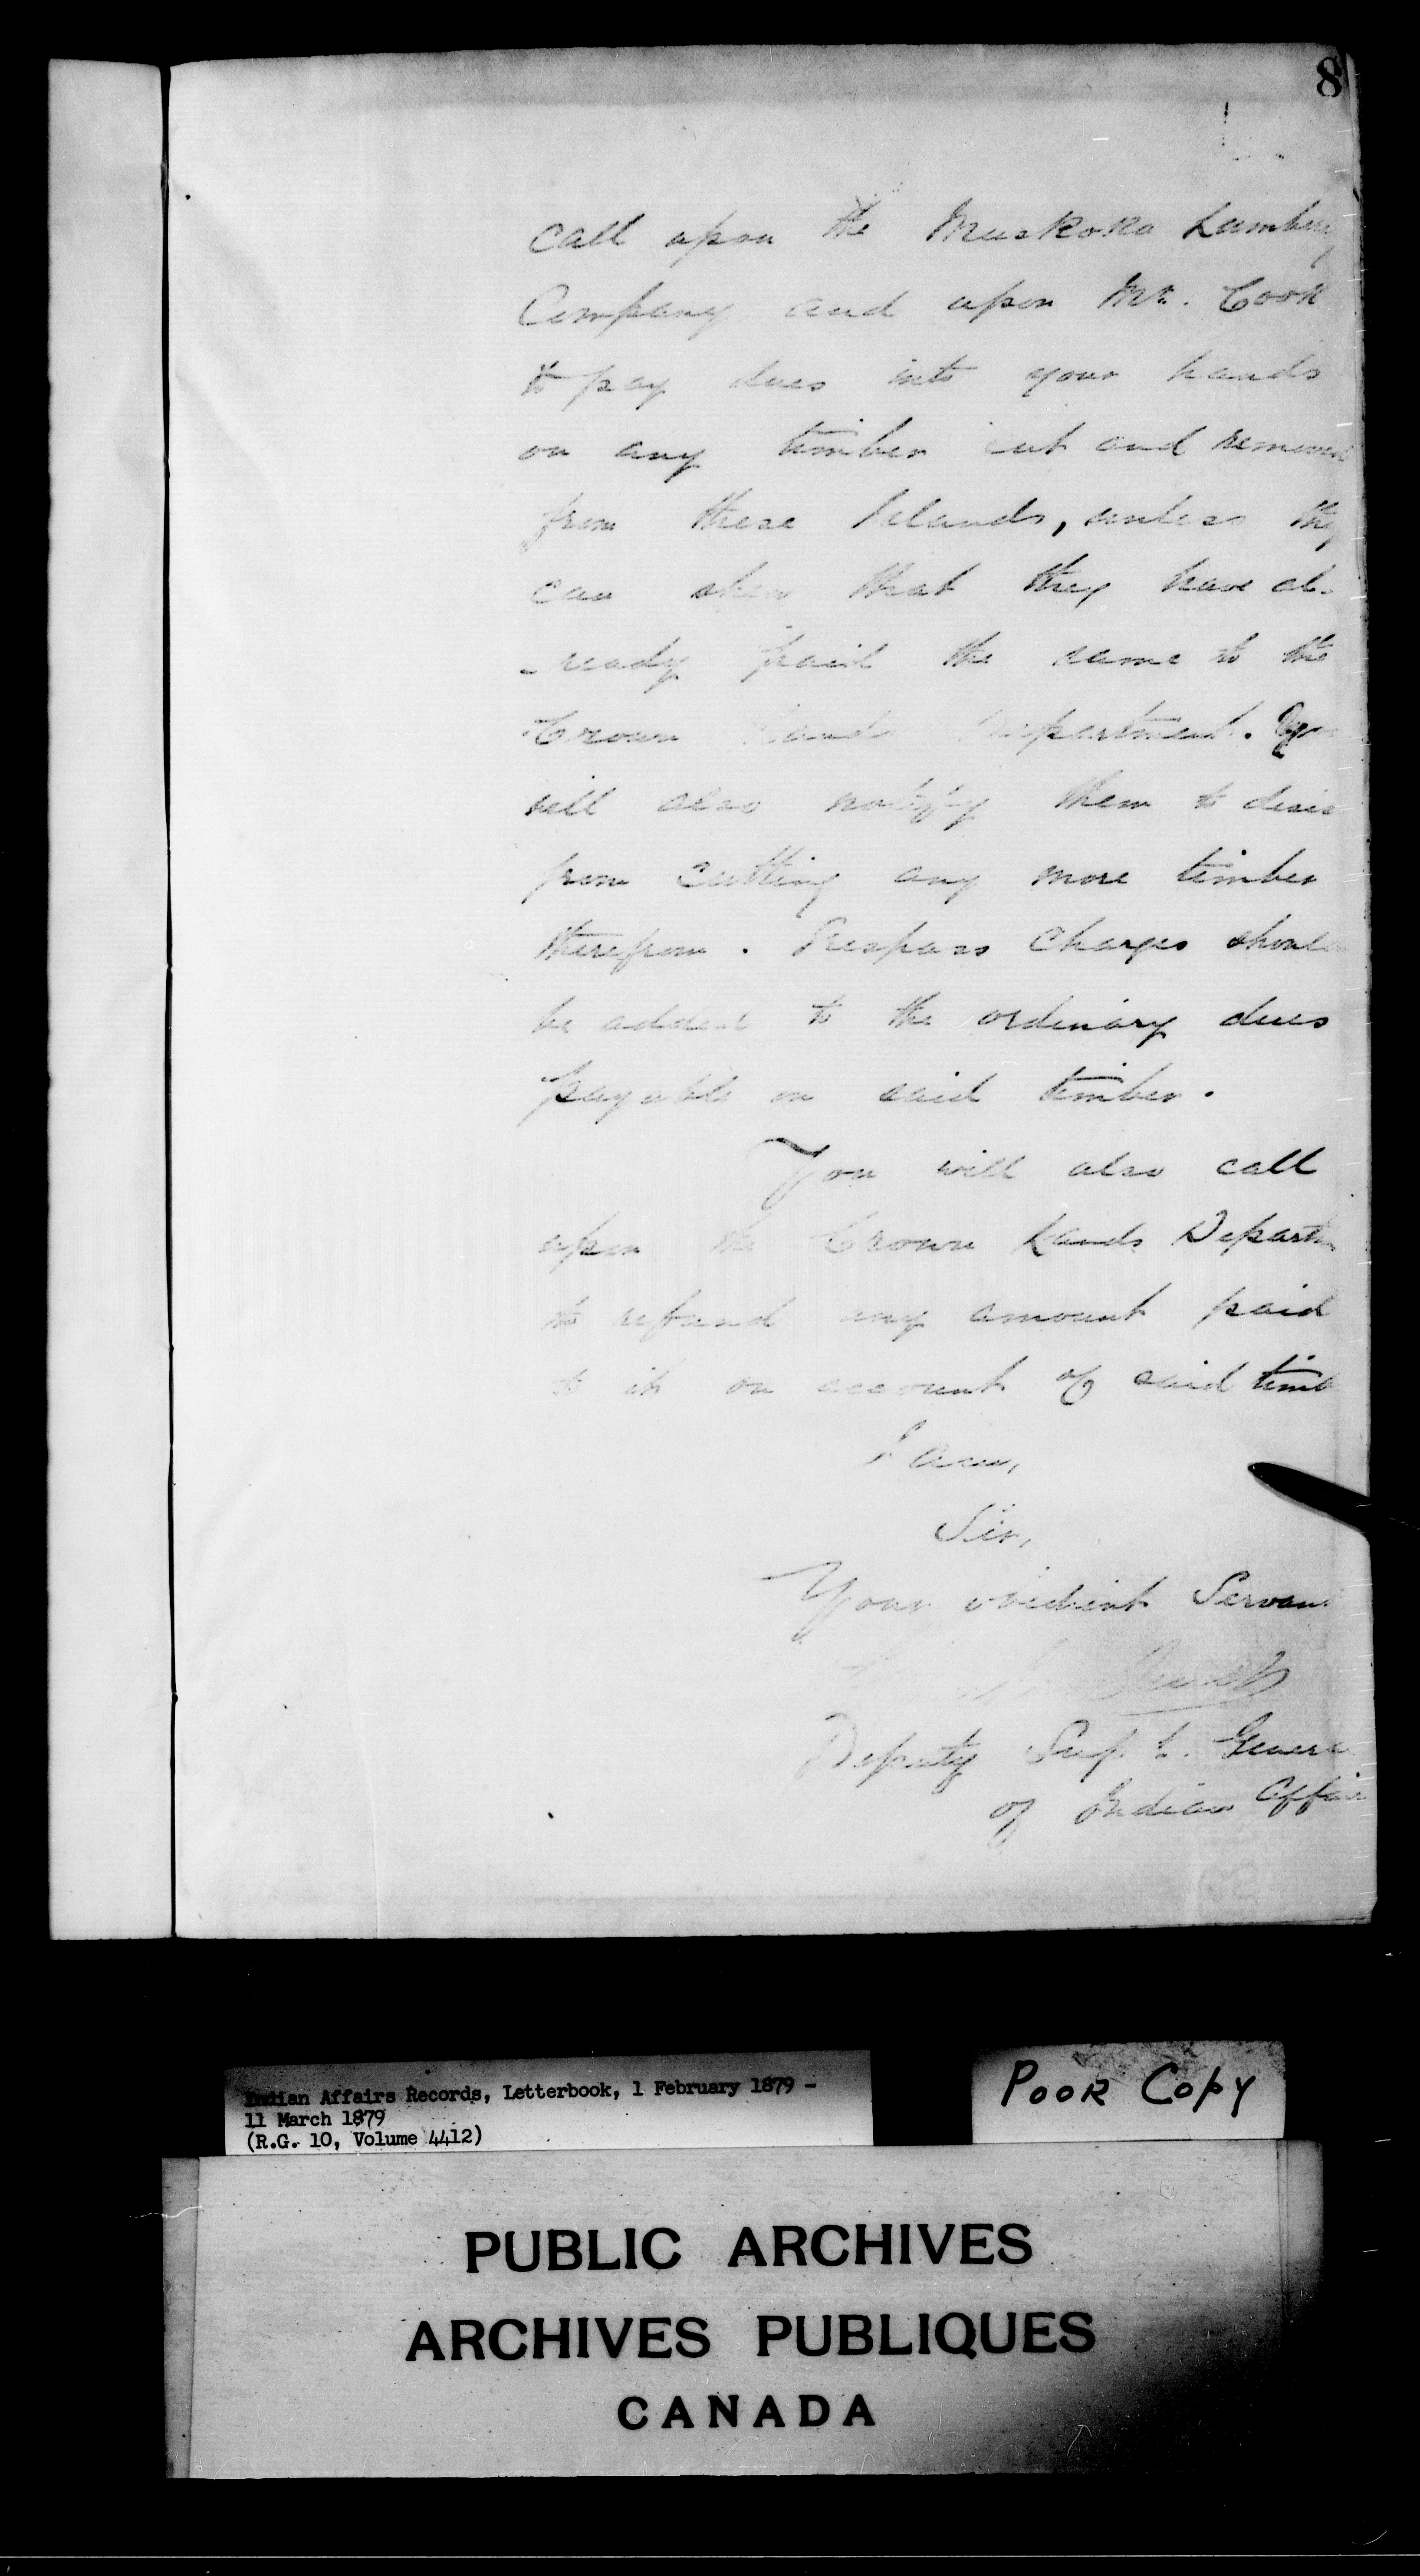 8
Call upon the Muskoka Lumberg
Company and upon Mr. Cook
to pay dues into your hands
on any timber cut and removed
from these Islands, unless they
can shew that they have al-
-ready paid the same to the
Crown Lands Department. You
will also notify them to desis
from cutting any more timber
therefrom. Trespass Charges should
be added to the ordinary dues
payable on said timber.
You will also call
upon the Crown Lands Departm
to refund any amount paid
to it on account of said timb
I am,
Sir,
Your obedient Servan
Deputy Sup. t. Genera
of Indian Affair
Indian Affairs Records, Letterbook, 1 February 1879 -
11 March 1879
(R.G. 10, Volume 4412)
POOR COPY
PUBLIC ARCHIVES
ARCHIVES PUBLIQUES
CANADA